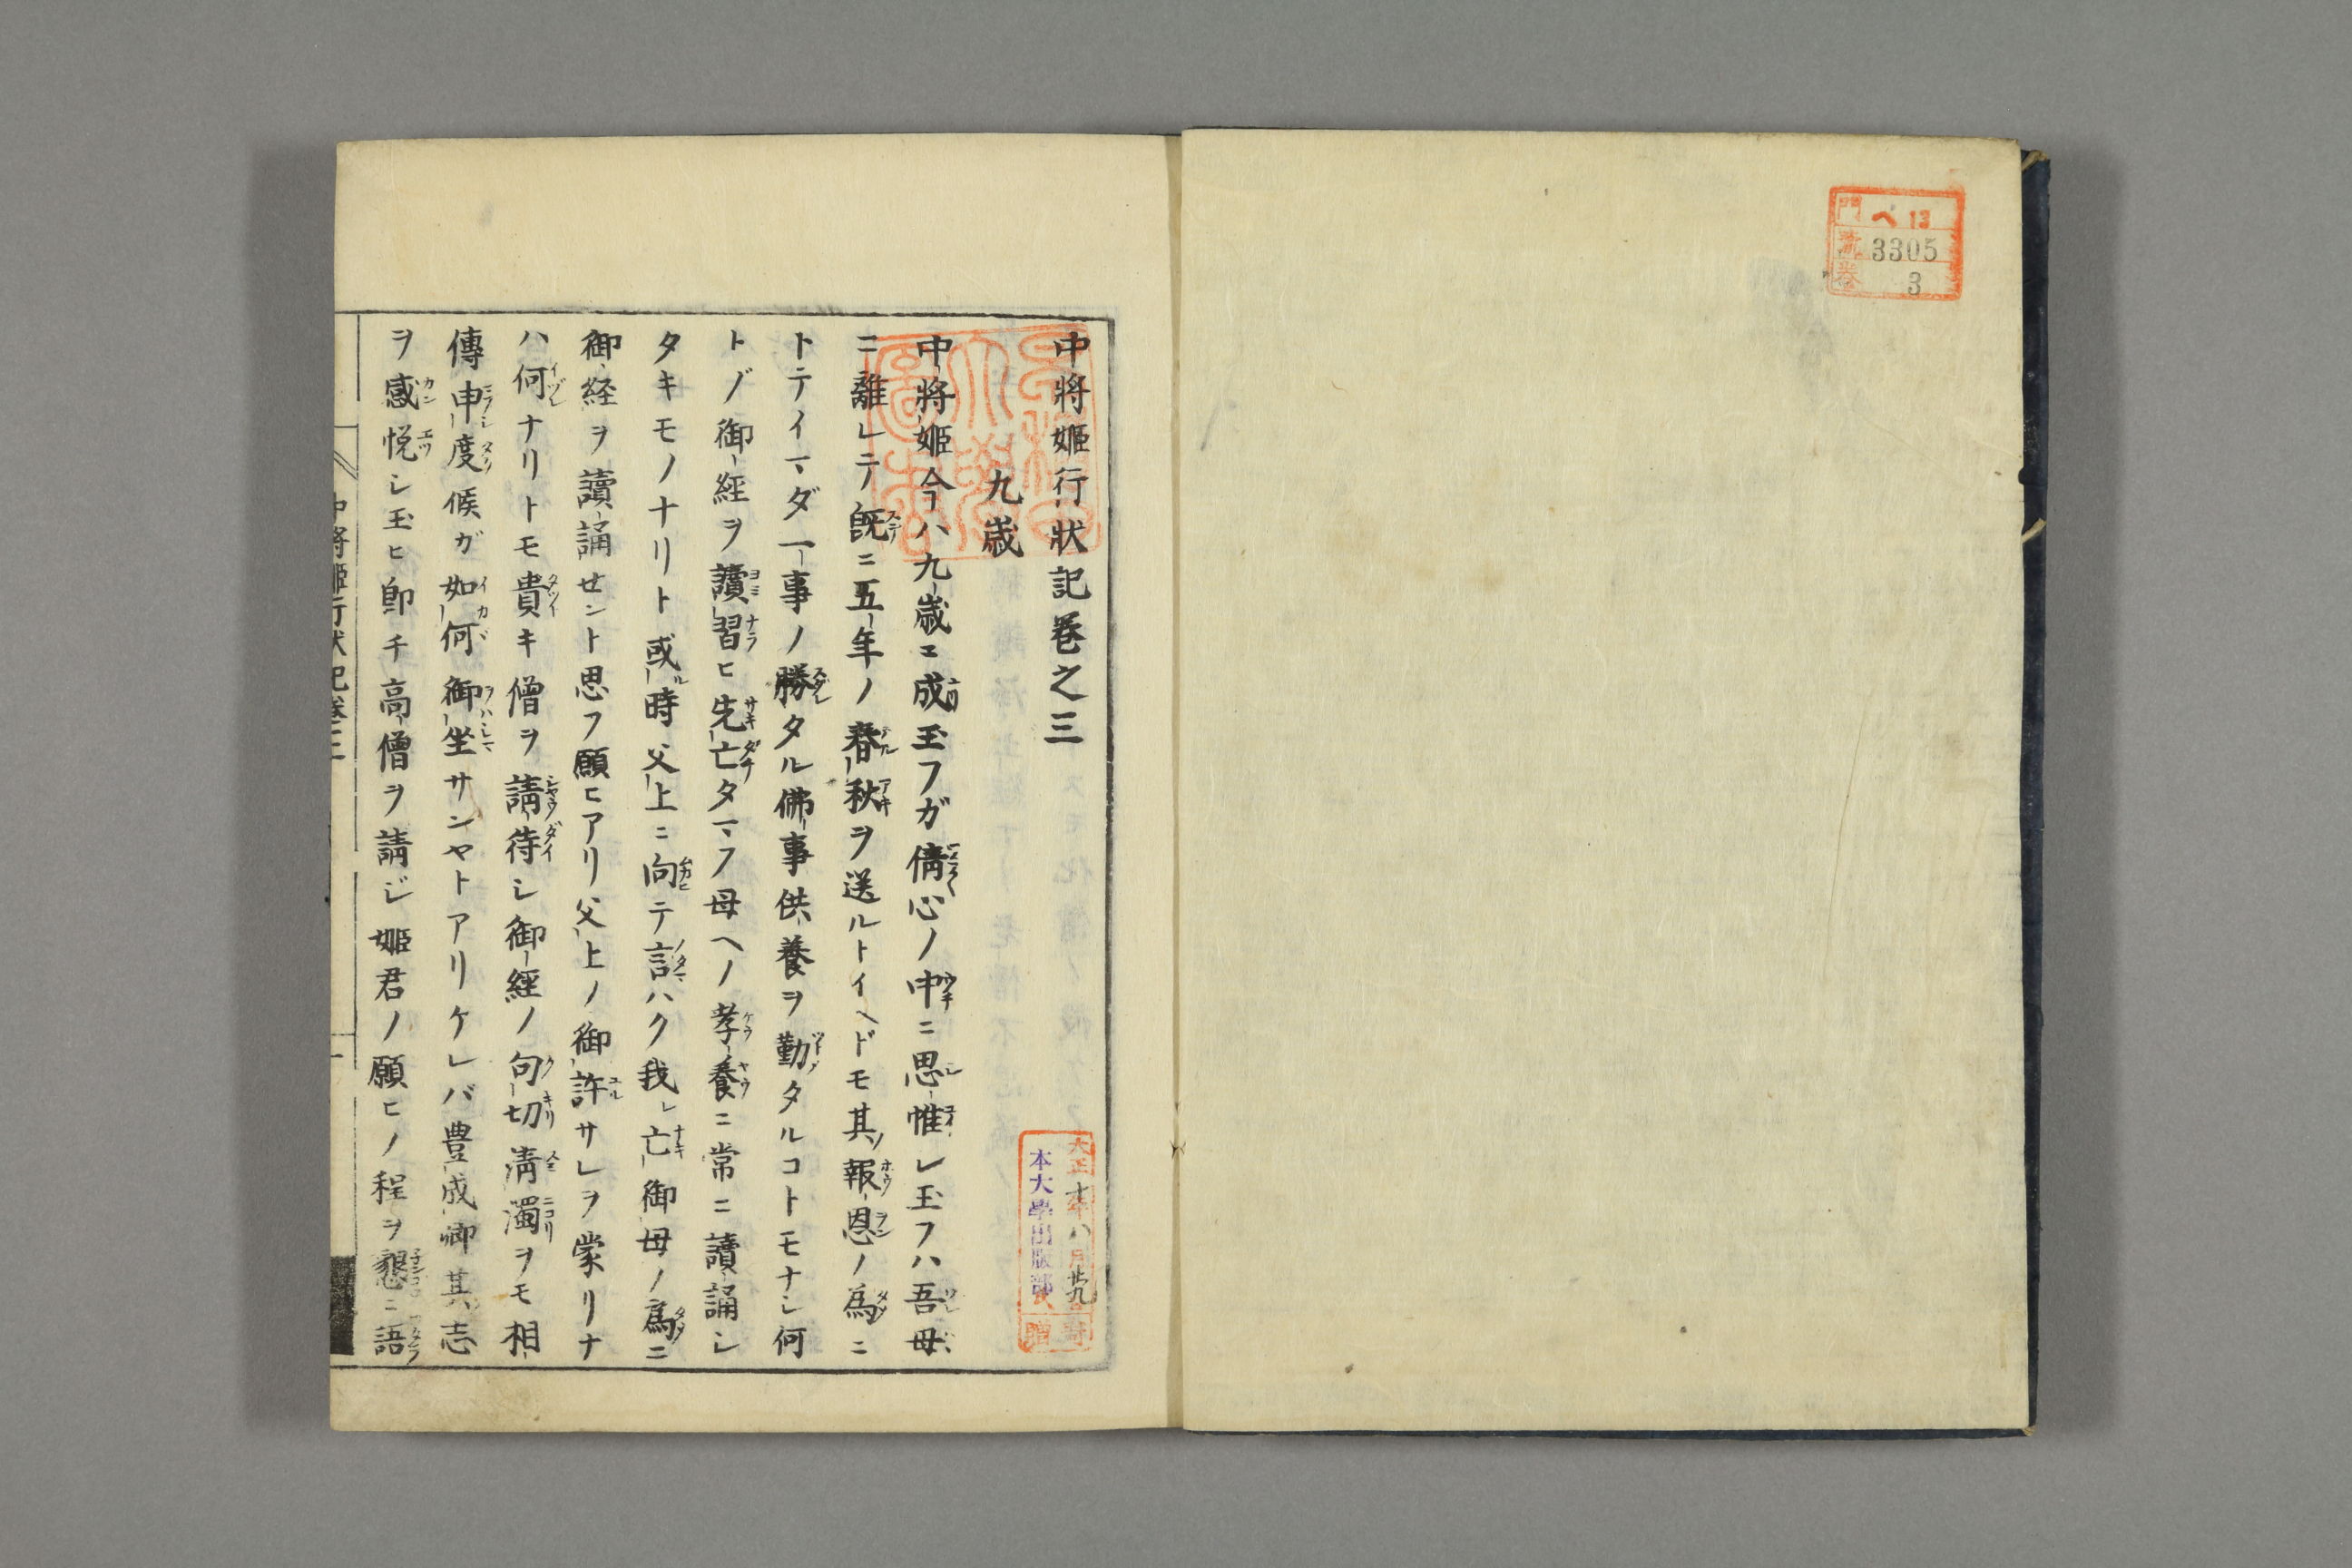 門 ヘ13
號 3305
卷 3
中將姬行狀記卷之三
九歲
中將姬今ハ九歲ニ成玉フガ倩心ノ中ニ思惟レ玉フハ吾母
ニ離レテ既ニ五年ノ春秋ヲ送ルトイヘドモ其ノ報恩ノ爲ニ
トテイマダ一事ノ勝タル佛事供養ヲ勤タルコトモナシ何
トゾ御經ヲ讀習ヒ先亡タマフ母ヘノ孝養ニ常ニ讀誦シ
タキモノナリト或ル時父上ニ向テ言ハク我レ亡御母ノ爲ニ
御経ヲ讀誦せント思フ願ヒアリ父上ノ御許サレヲ蒙リナ
ハ何ナリトモ貴キ僧ヲ請待シ御經ノ句切清濁ヲモ相
傳申度候ガ如何御坐サンヤトアリケレバ豊成卿其志
ヲ感悦シ玉ヒ即チ高僧ヲ請ジ姬君ノ願ヒノ程ヲ懇ニ語
中將姬行狀記卷三
大正十年八月廿九
本大學出版部
寄贈